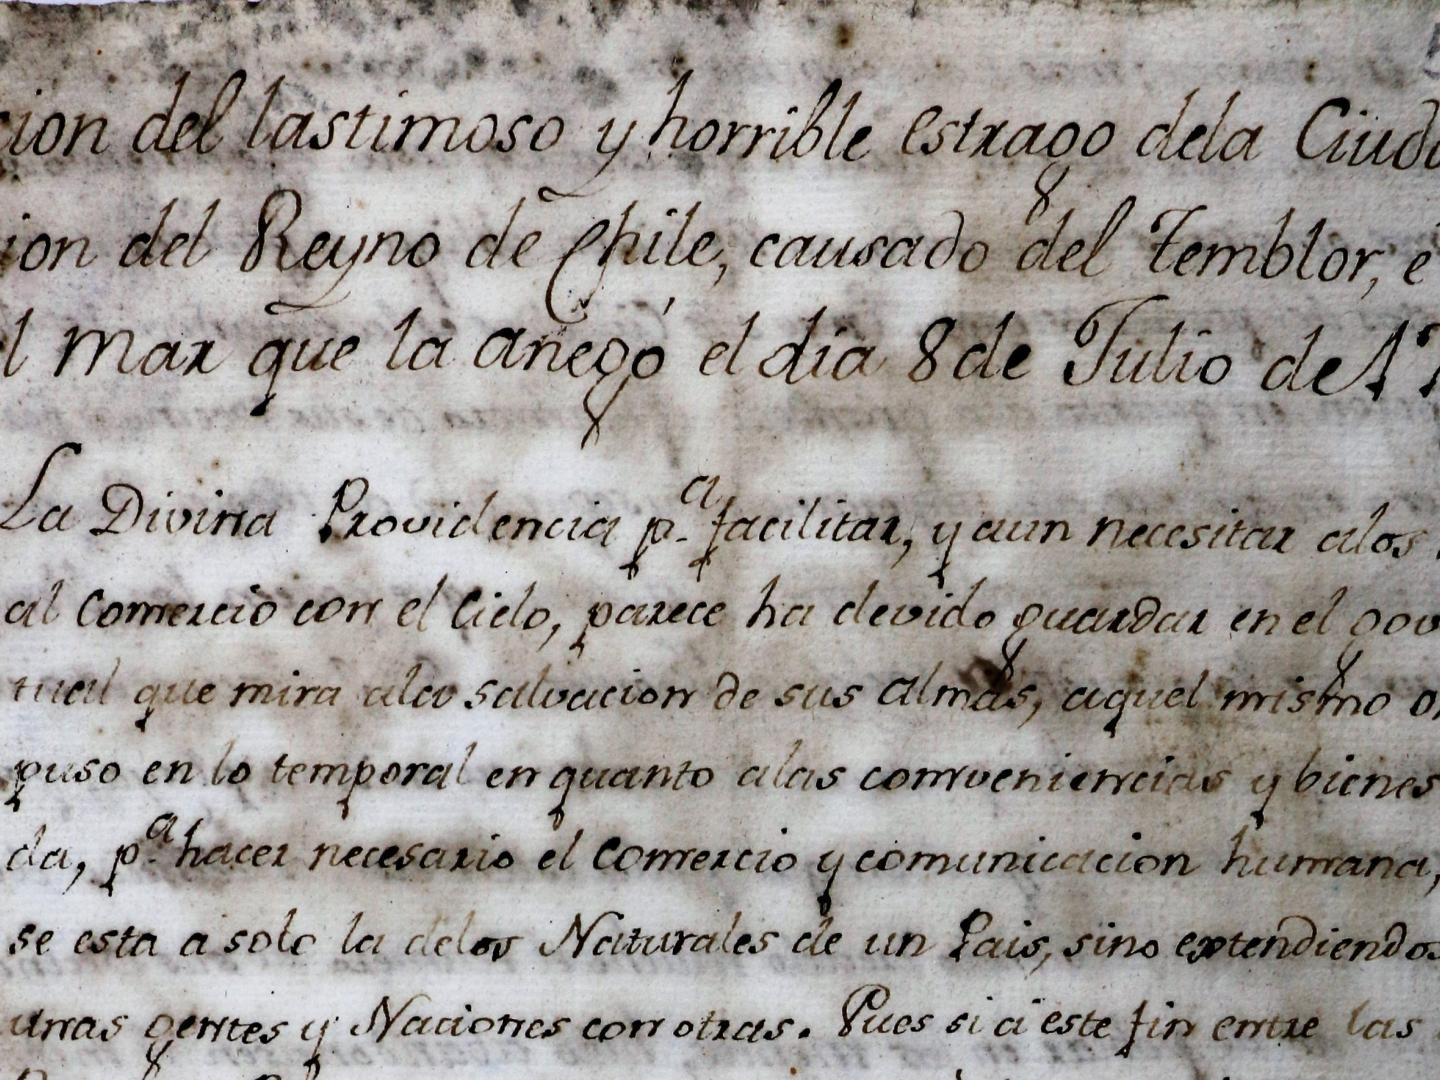 cion del lastimoso y horrible estrago dela Ciuda
ion del Reyno de Chile, causado del Temblor, é
l mar que la anegó el dia 8 de Julio de 17
La Divina Providencia p.ª facilitar, y aun necesitar alos
al Comercio con el Cielo, parece ha devido guardar en el gov
tual que mira ala salvacion de sus almas, aquel mismo or
puso en lo temporal en quanto alas conveniencias y bienes
da, p.ª hacer necesario el Comercio y comunicacion humana,
se esta a solo la delos Naturales de un Pais, sino extendiendos
unas gentes y Naciones con otras. Pues si á este fin entre las